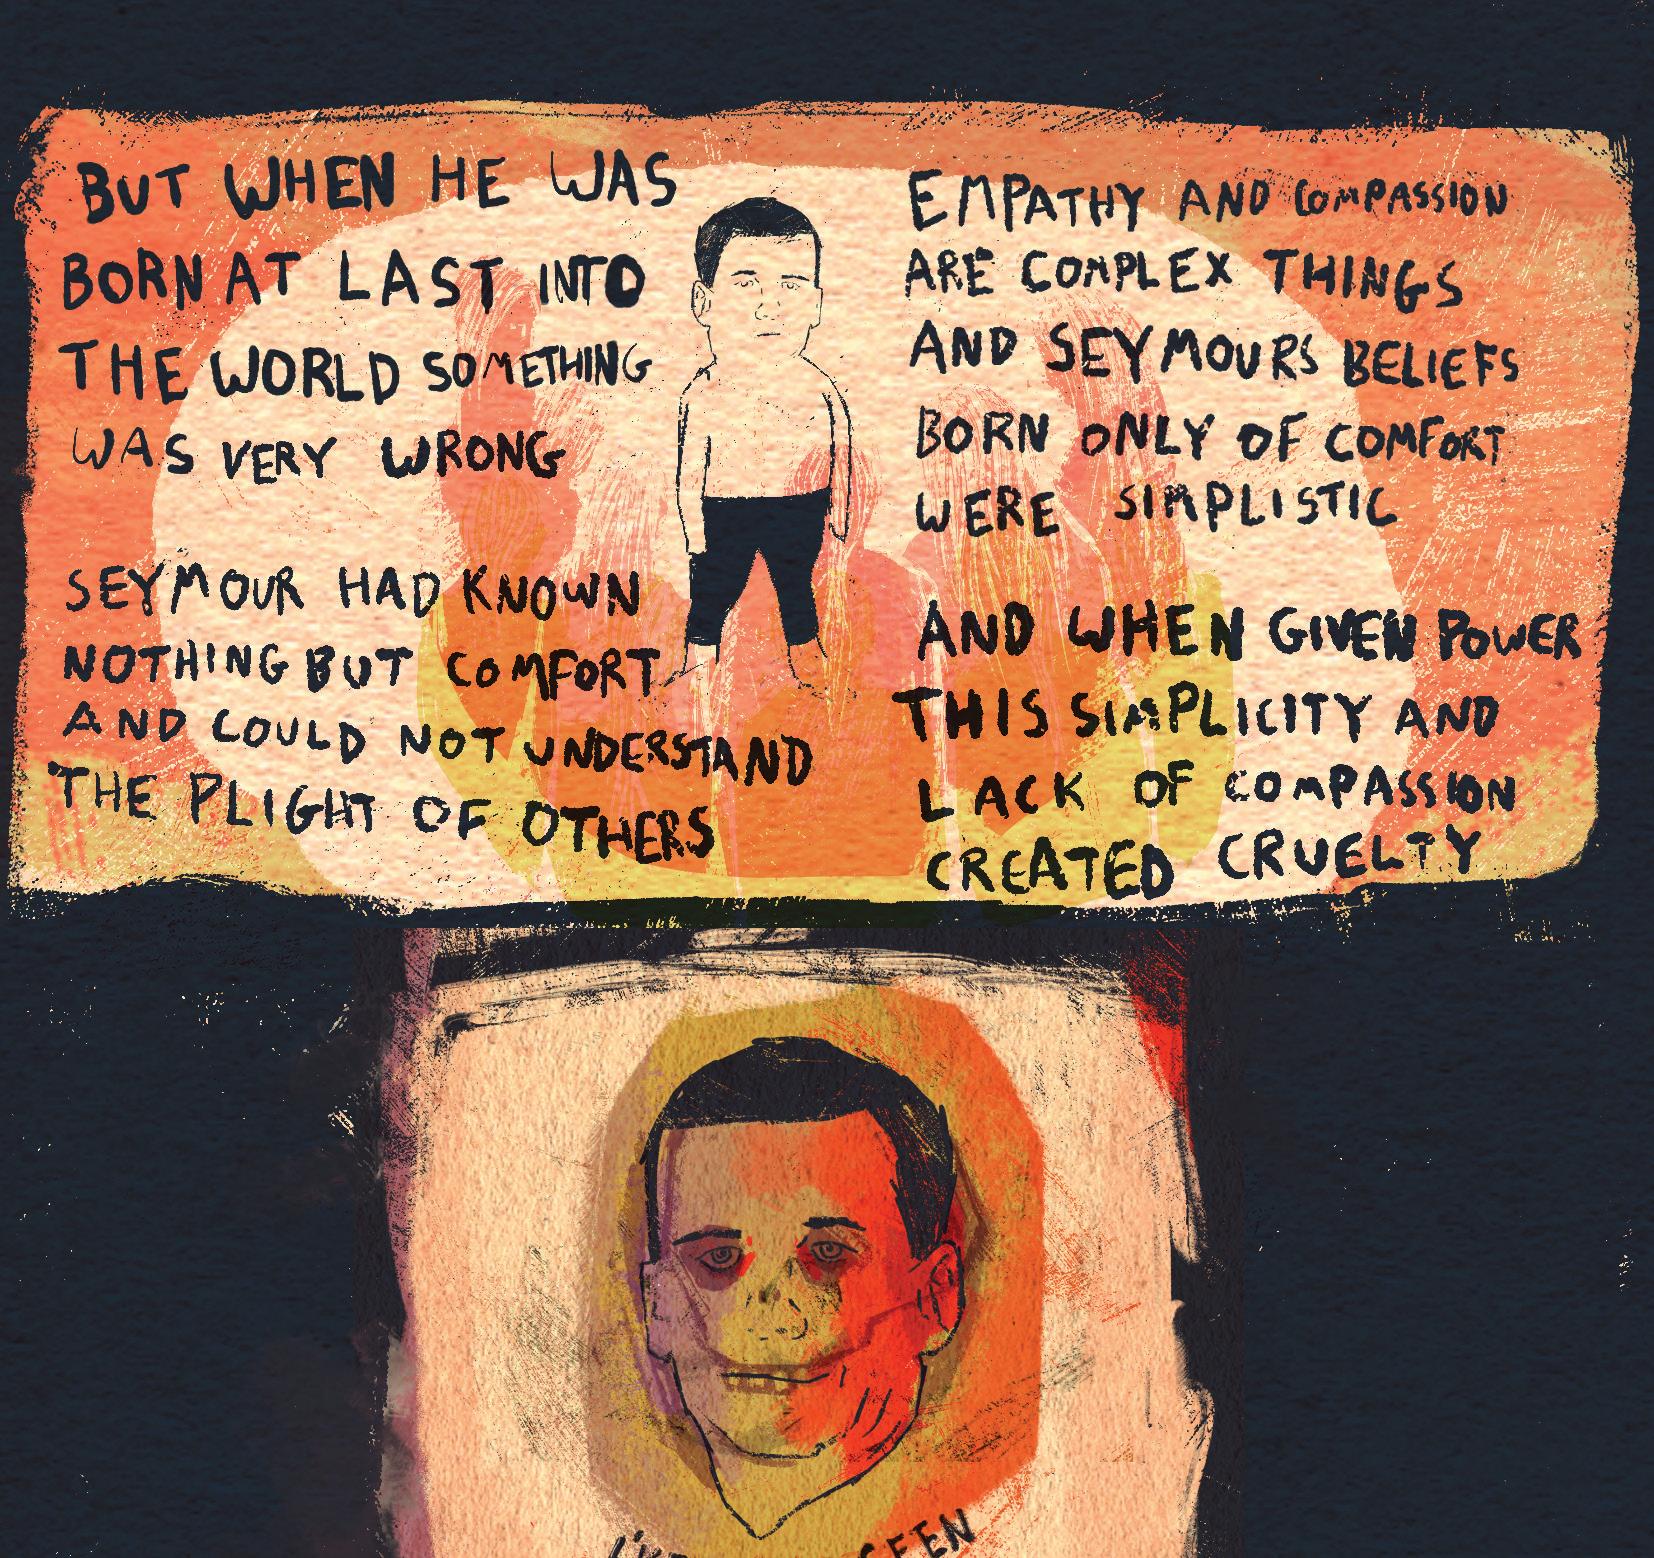 BUT WHEN HE WAS
BORN AT LAST INTO
THE WORLD SOMETHING
WAS VERY WRONG
SEYMOUR HAD KNOWN
NOTHING BUT COMFORT
AND COULD NOT UNDERSTAND
THE PLIGHT OF OTHERS
EMPATHY AND COMPASSION
ARE COMPLEX THINGS
AND SEYMOURS BELIEFS
BORN ONLY OF COMFORT
WERE SIMPLISTIC
AND WHEN GIVEN POWER
THIS SIMPLICITY AND
LACK OF COMPASSION
CREATED CRUELTY